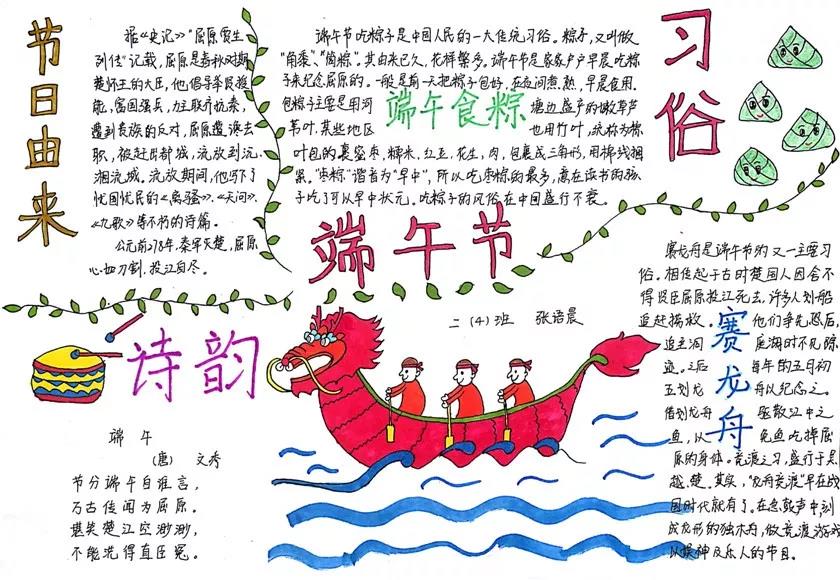 节日由来
据《史记》"屈原贾生
列传"记载,屈原是春秋时期
楚怀王的大臣,他倡导举贤授
能,富国强兵,力主联齐抗秦,
遭到贵族的反对,屈原遭谗去
职,被赶出都城,流放到沅、
湘流域。流放期间,他写下了
忧国忧民的《离骚》、《天问》、
《九歌》等不朽的诗篇。
公元前278年,秦军灭楚,屈原
心如刀割,投江自尽。
端午节吃粽子是中国人民的一大传统习俗。粽子,又叫做
"角黍"、"筒粽"。其由来已久,花样繁多。端午节是家家户户早晨吃粽
子来纪念屈原的。一般是前一天把粽子包好,在夜间煮熟,早晨食用。
包粽子主要是用河
塘边盛产的嫩芦苇
苇叶,某些地区
也用竹叶,统称为粽
叶包的裹蜜枣、糯米、红豆、花生,肉,包裹成三角形,用棉线捆
紧,"枣粽"谐音为"早中",所以吃枣粽的最多,意在读书的孩
子吃了可以早中状元。吃粽子的风俗在中国盛行不衰。
端午食粽
习俗
端午节
二(4)班 张语晨
诗韵
端 午
(唐) 文秀
节分端午自谁言,
万古传闻为屈原。
堪笑楚江空渺渺,
不能洗得直臣冤。
赛龙舟
赛龙舟是端午节的又一主要习
俗。相传起于古时楚国人因舍不
得贤臣屈原投江死去,许多人划船
追赶拯救。他们争先恐后,
追至洞庭湖时不见踪
迹。之后每年的五月初
五划龙舟以纪念之。
借划龙舟驱散江中之
鱼,以免鱼吃掉屈
原的身体。竞渡之习,盛行于吴、
越、楚。其实,"龙舟竞渡"早在战
国时代就有了。在急鼓声中划
成龙形的独木舟,做竞渡游戏
以娱神及乐人的节目。